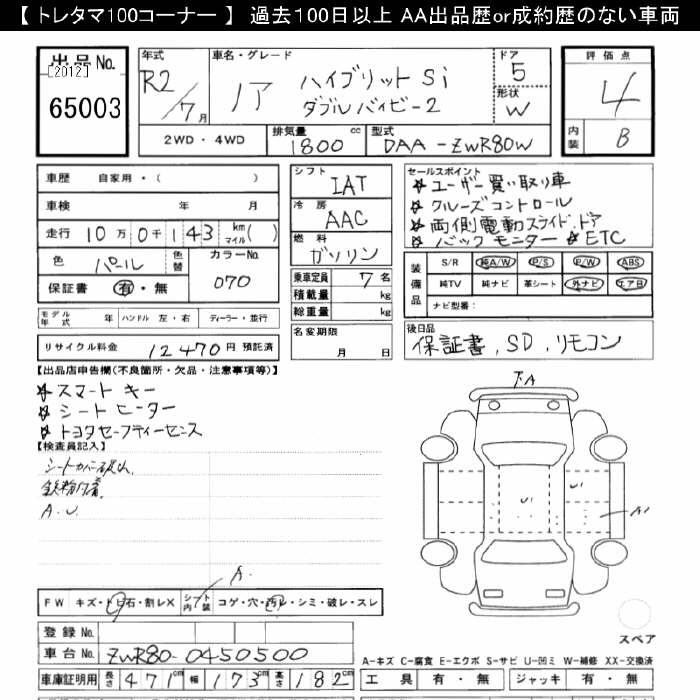 【 トレタマ100コーナー 】 過去100日以上 AA出品歴or成約歴のない車両
出品No. [2012] 65003
年式 R2/7月
車名・グレード ノア ハイブリット Si
ダブルバイビー2
ドア 5
形状 W
評価点 4
内装 B
2WD・4WD 排気量 1800cc 型式 DAA-ZWR80W
車歴 自家用・( )
車検 年 月
走行 10万0千143 km マイル( )
色 パール 色替 カラーNo. 070
保証書 有・無
モデル年式 年 ハンドル 左・右 ディーラー・並行
リサイクル料金 12470円 預託済
シフト IAT
冷房 AAC
燃料 ガソリン
乗車定員 7名
積載量 kg
総重量 kg
名変期限 月 日
セールスポイント
☆ユーザー買い取り車
☆クルーズコントロール
☆両側電動スライドドア
☆バックモニター ☆ETC
装備品 S/R 純A/W P/S P/W ABS
純TV 純ナビ 革シート 外ナビ エアB
ナビ型番:
後日品
保証書, SD, リモコン
【出品店申告欄(不良箇所・欠品・注意事項等)】
☆スマートキー
☆シートヒーター
☆トヨタセーフティーセンス
【検査員記入】
シートカバー破れ
鉄粉付着
A.U
下A
U1
U1
A1
A.
FW キズ・トビ石・割レX シート内装 コゲ・穴・汚レ・シミ・破レ・スレ
登録No.
車台No. ZWR80-0450500
車庫証明用 長さ 471cm 幅 173cm 高さ 182cm
スペア
A-キズ C-腐食 E-エクボ S-サビ U-凹ミ W-補修 XX-交換済
工具 有・無 ジャッキ 有・無